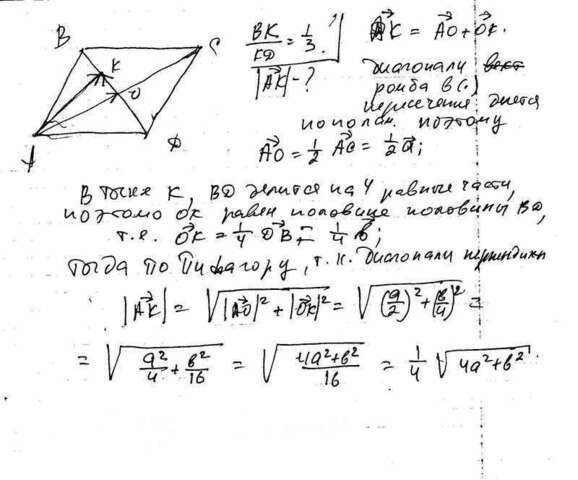 B C K O A D
BK/KD = 1/3.
|AK⃗| - ?
AK⃗ = AO⃗ + OK⃗.
Диагонали
ромба в (·)
пересечения делятся
пополам. поэтому
AO⃗ = 1/2 AC⃗ = 1/2 a⃗;
В точке K, BD делится на 4 равные части,
поэтому OK равен половине половины BD,
т.е. OK⃗ = 1/4 DB⃗ = 1/4 b⃗;
Тогда по Пифагору, т.к. диагонали перпендикл
|AK⃗| = √(|AO⃗|² + |OK⃗|²) = √((a/2)² + (b/4)²) =
= √(a²/4 + b²/16) = √((4a²+b²)/16) = 1/4 √(4a²+b²).